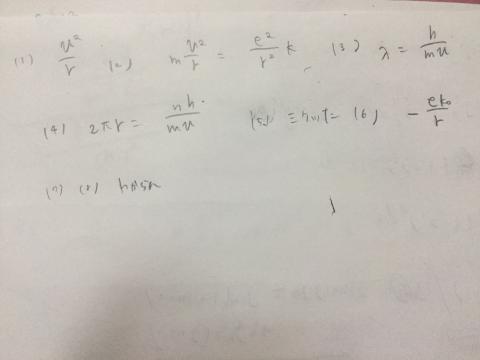 (1) v²/r (2) m v²/r = e²/r² k (3) λ = h/mv
(4) 2πr = nh/mv (5) ミリカン (6) - ek₀/r
(7) (8) わからん